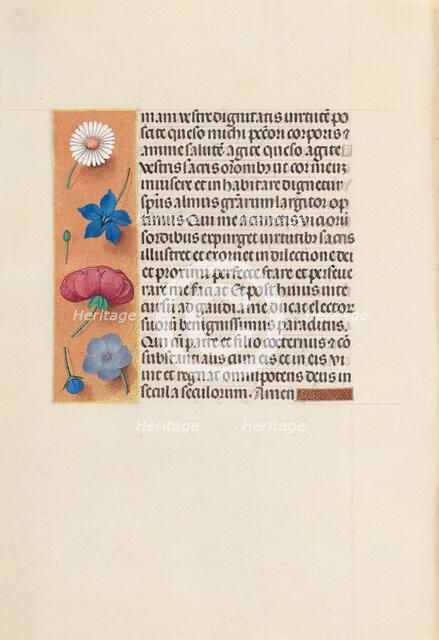 mam vestre dignitatis virtutem po
scite queso michi peccori corporis &
anime salutem agite queso agite
vestris sacris oronibus ut cor meum
invisere et in habitare dignetur
spus almus grarum largitor op
timus Qui me a cunctis viciorum
sordibus expurget virtutibus sacris
illustret et exornet in dilectione dei
et proximi perfecte stare et perseve
rare me faciat Et post huius vite
cursum ad gaudia me ducat elector
suorum benignissimus paraclitus.
Qui cum patre et filio coeternus & con
substancialis cum eis et in eis vi
vit et regnat omnipotens deus in
secula seculorum. Amen
Heritage Heritage Heritage
Heritage Heritage